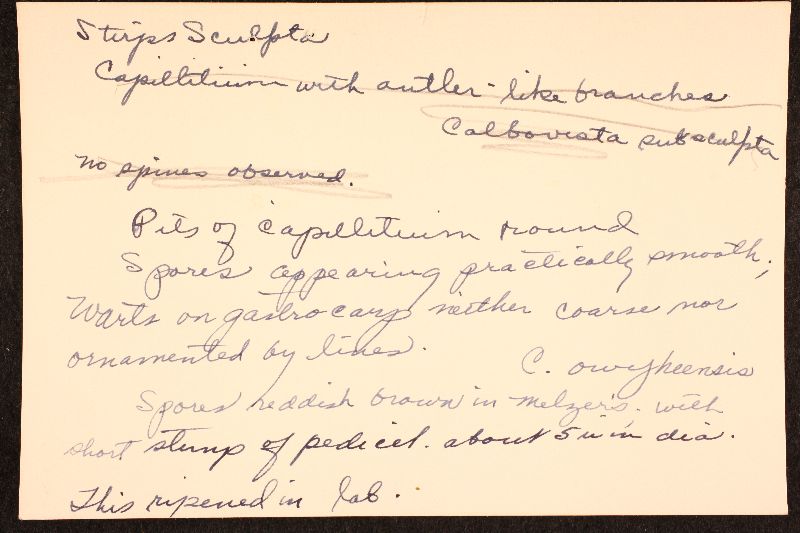 Stirps Sculpta
Capillitium with antler-like branches
Calbovista subsculpta
no spines observed.
Pits of capillitium round
Spores appearing practically smooth;
Warts on gastrocarp neither coarse nor
ornamented by lines.
C. owyheensis
Spores reddish brown in Melzer's, with
short stump of pedicel. about 5 u in dia.
This ripened in lab.